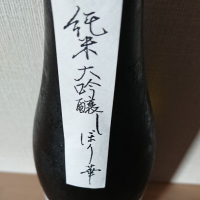 純米大吟醸しぼり華